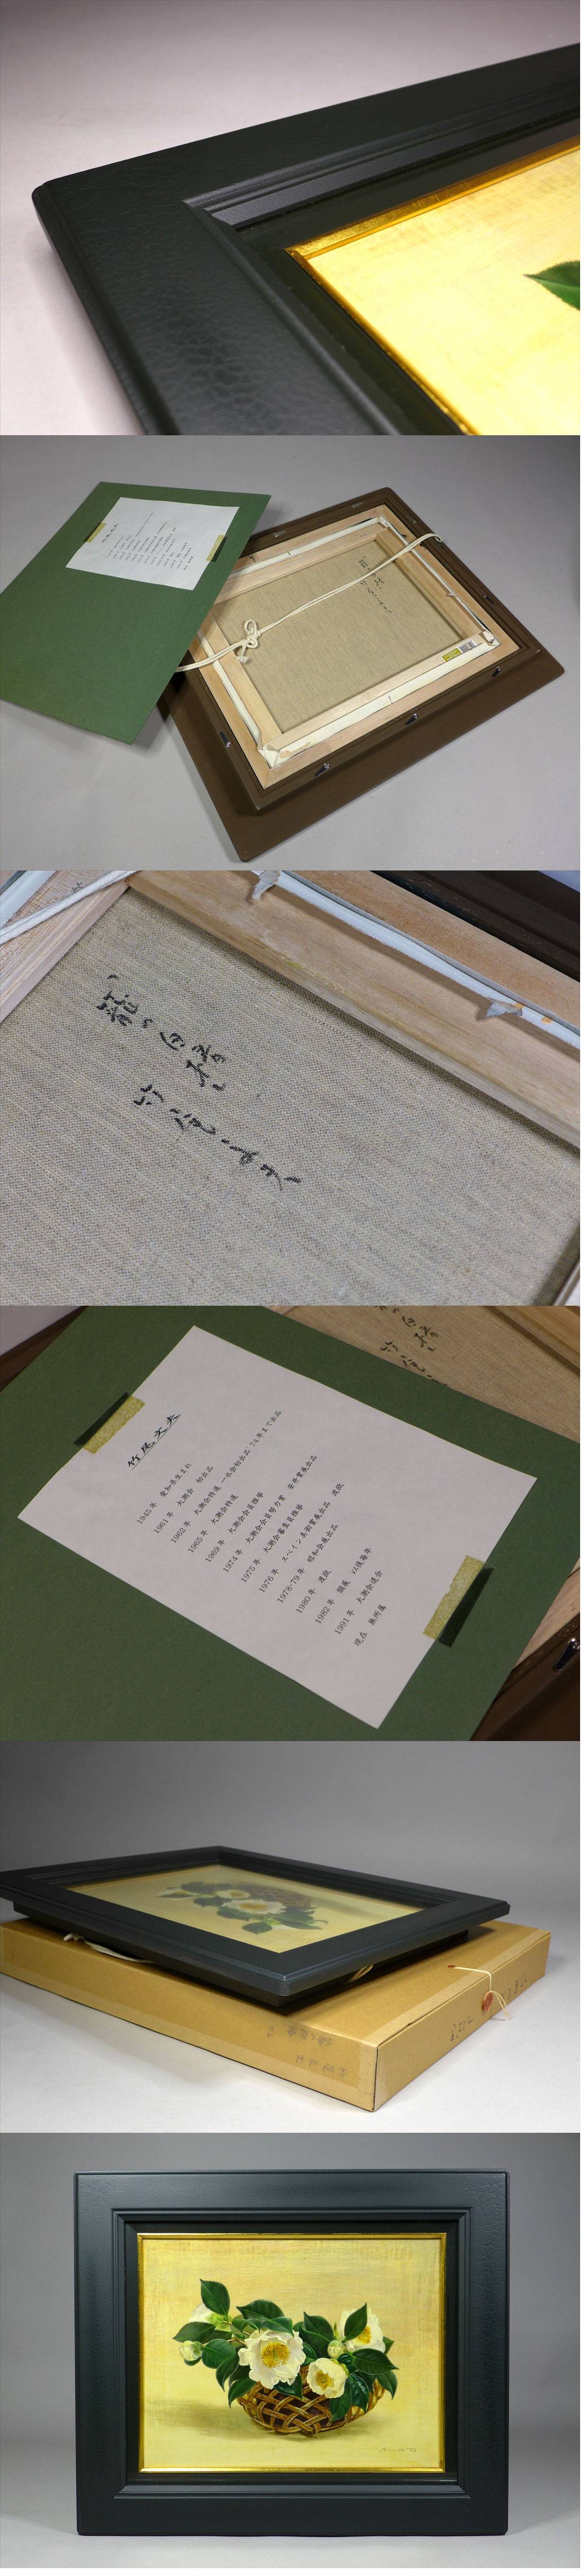 籠の白椿
竹尾文夫
竹尾文夫
1945年 愛知県生まれ
1961年 大潮会 初出品
1962年 大潮会特選 一水会初出品 74年まで出品
1965年 大潮会特選
1969年 大潮会会員推挙
1974年 大潮会会員努力賞 安井賞展出品
1975年 大潮会審査員推挙
1976年 スペイン美術賞展出品 渡欧
1978-79年 昭和会展出品
1980年 渡欧
1982年 個展 以後毎年
1991年 大潮会退会
現在 無所属